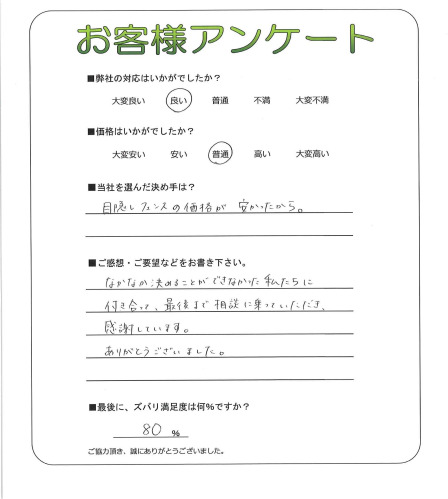 お客様アンケート
■弊社の対応はいかがでしたか？
大変良い 良い 普通 不満 大変不満
■価格はいかがでしたか？
大変安い 安い 普通 高い 大変高い
■当社を選んだ決め手は？
目隠しフェンスの価格が 安かったから。
■ご感想・ご要望などをお書き下さい。
なかなか決めることができなかった私たちに
付き合って、最後まで相談に乗っていただき、
感謝しています。
ありがとうございました。
■最後に、ズバリ満足度は何％ですか？
80 ％
ご協力頂き、誠にありがとうございました。